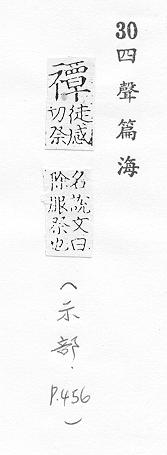 30四聲篇海
禫
徒感
切祭
名說文曰
除服祭也
(示部．P.456)